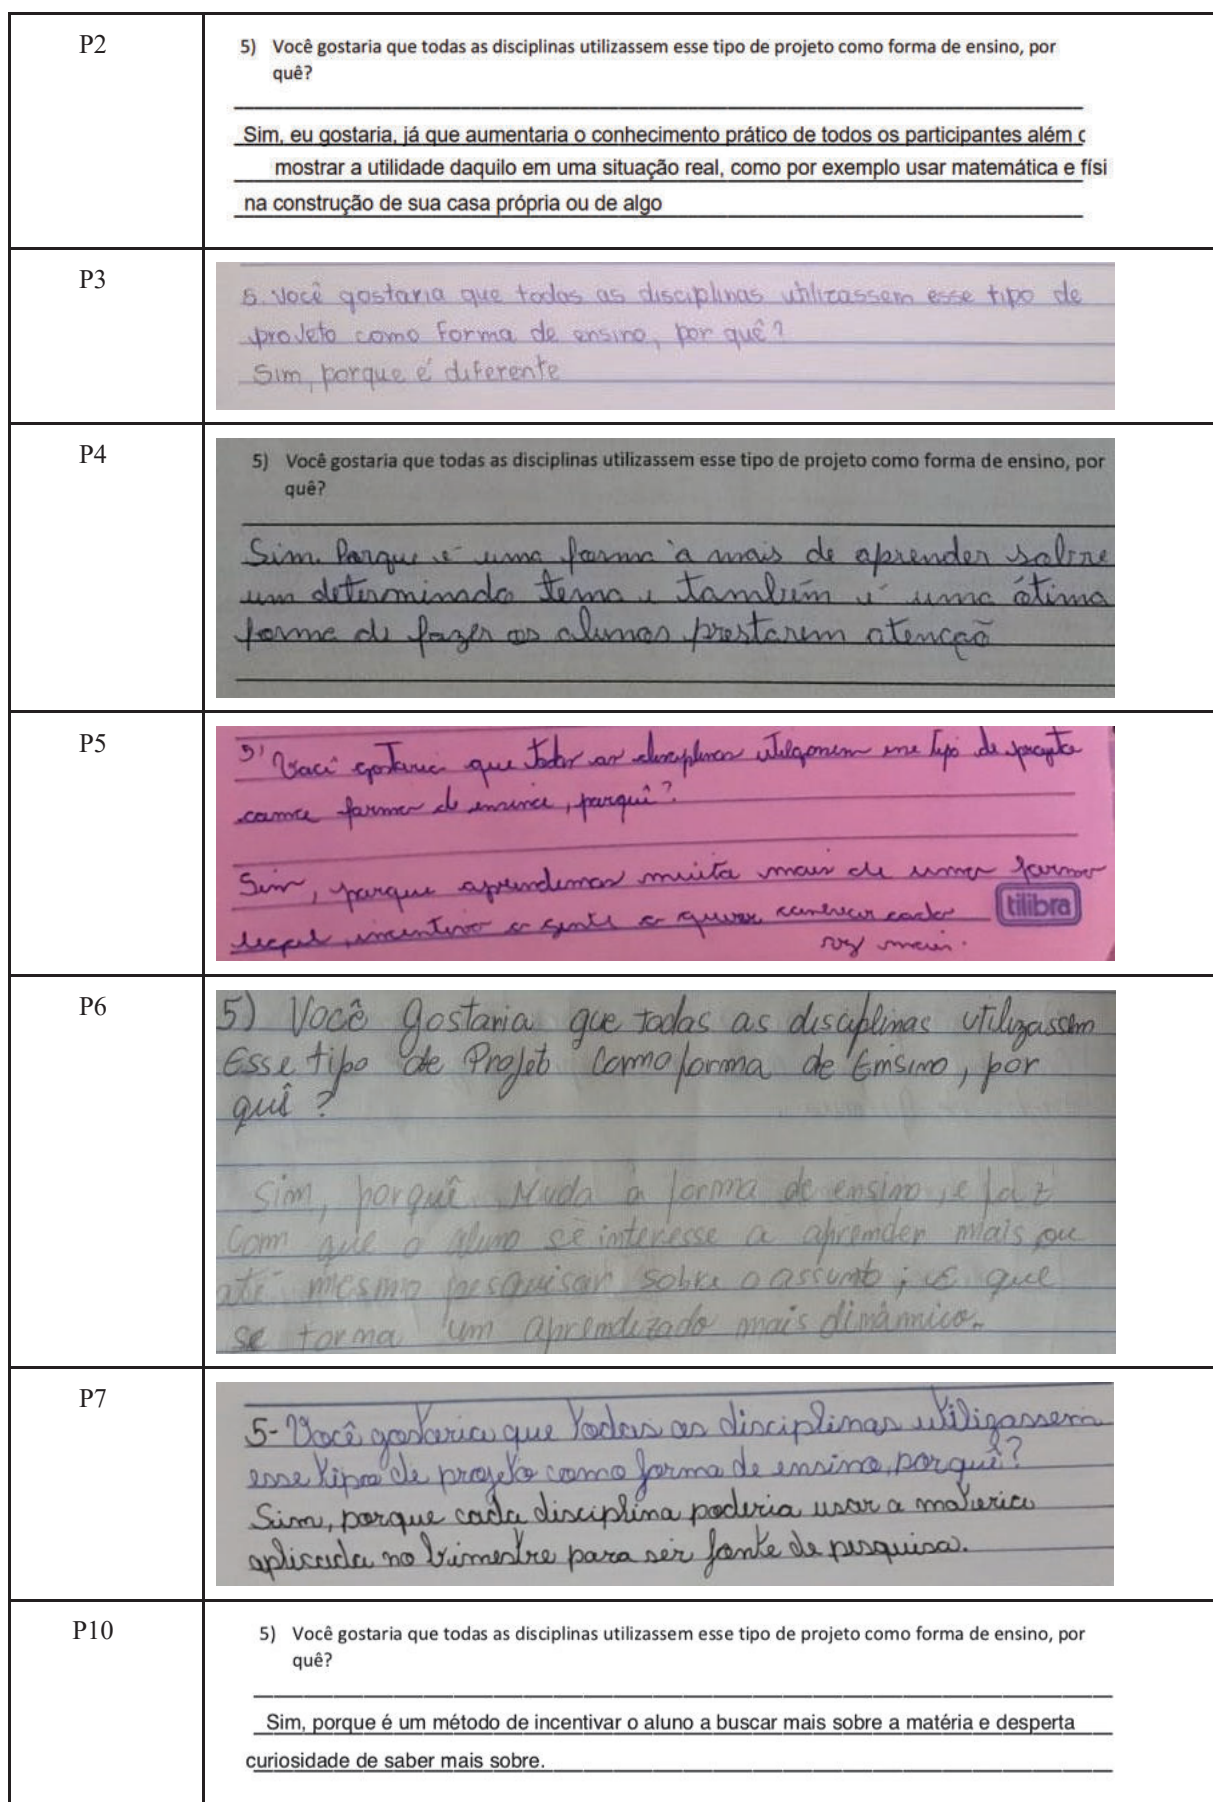 P2
5) Você gostaria que todas as disciplinas utilizassem esse tipo de projeto como forma de ensino, por
quê?
Sim, eu gostaria, já que aumentaria o conhecimento prático de todos os participantes além
mostrar a utilidade daquilo em uma situação real, como por exemplo usar matemática e físi
na construção de sua casa própria ou de algo
P3
5. Você gostaria que todas as disciplinas utilizassem esse tipo de
projeto como forma de ensino, por quê?
Sim, porque é diferente
P4
5) Você gostaria que todas as disciplinas utilizassem esse tipo de projeto como forma de ensino, por
quê?
Sim. Porque é uma forma a mais de aprender sobre
um determinado tema e também é uma ótima
forma de fazer os alunos prestarem atenção
P5
5) Você gostaria que todas as disciplinas utilizassem esse tipo de projeto
como forma de ensino, porquê?
Sim, porque aprendemos muito mais de uma forma
legal, incentiva a gente a querer conhecer cada
vez mais.
tilibra
P6
5) Você gostaria que todas as disciplinas utilizassem
Esse tipo de Projeto como forma de Ensino, por
quê?
Sim, porquê Muda a forma de ensino, e faz
com que o aluno se interesse a aprender mais ou
até mesmo pesquisar sobre o assunto; que
se torna um aprendizado mais dinâmico.
P7
5- Você gostaria que todas as disciplinas utilizassem
esse tipo de projeto como forma de ensino, porquê?
Sim, porque cada disciplina poderia usar a matéria
aplicada no trimestre para ser fonte de pesquisa.
P10
5) Você gostaria que todas as disciplinas utilizassem esse tipo de projeto como forma de ensino, por
quê?
Sim, porque é um método de incentivar o aluno a buscar mais sobre a matéria e desperta
curiosidade de saber mais sobre.